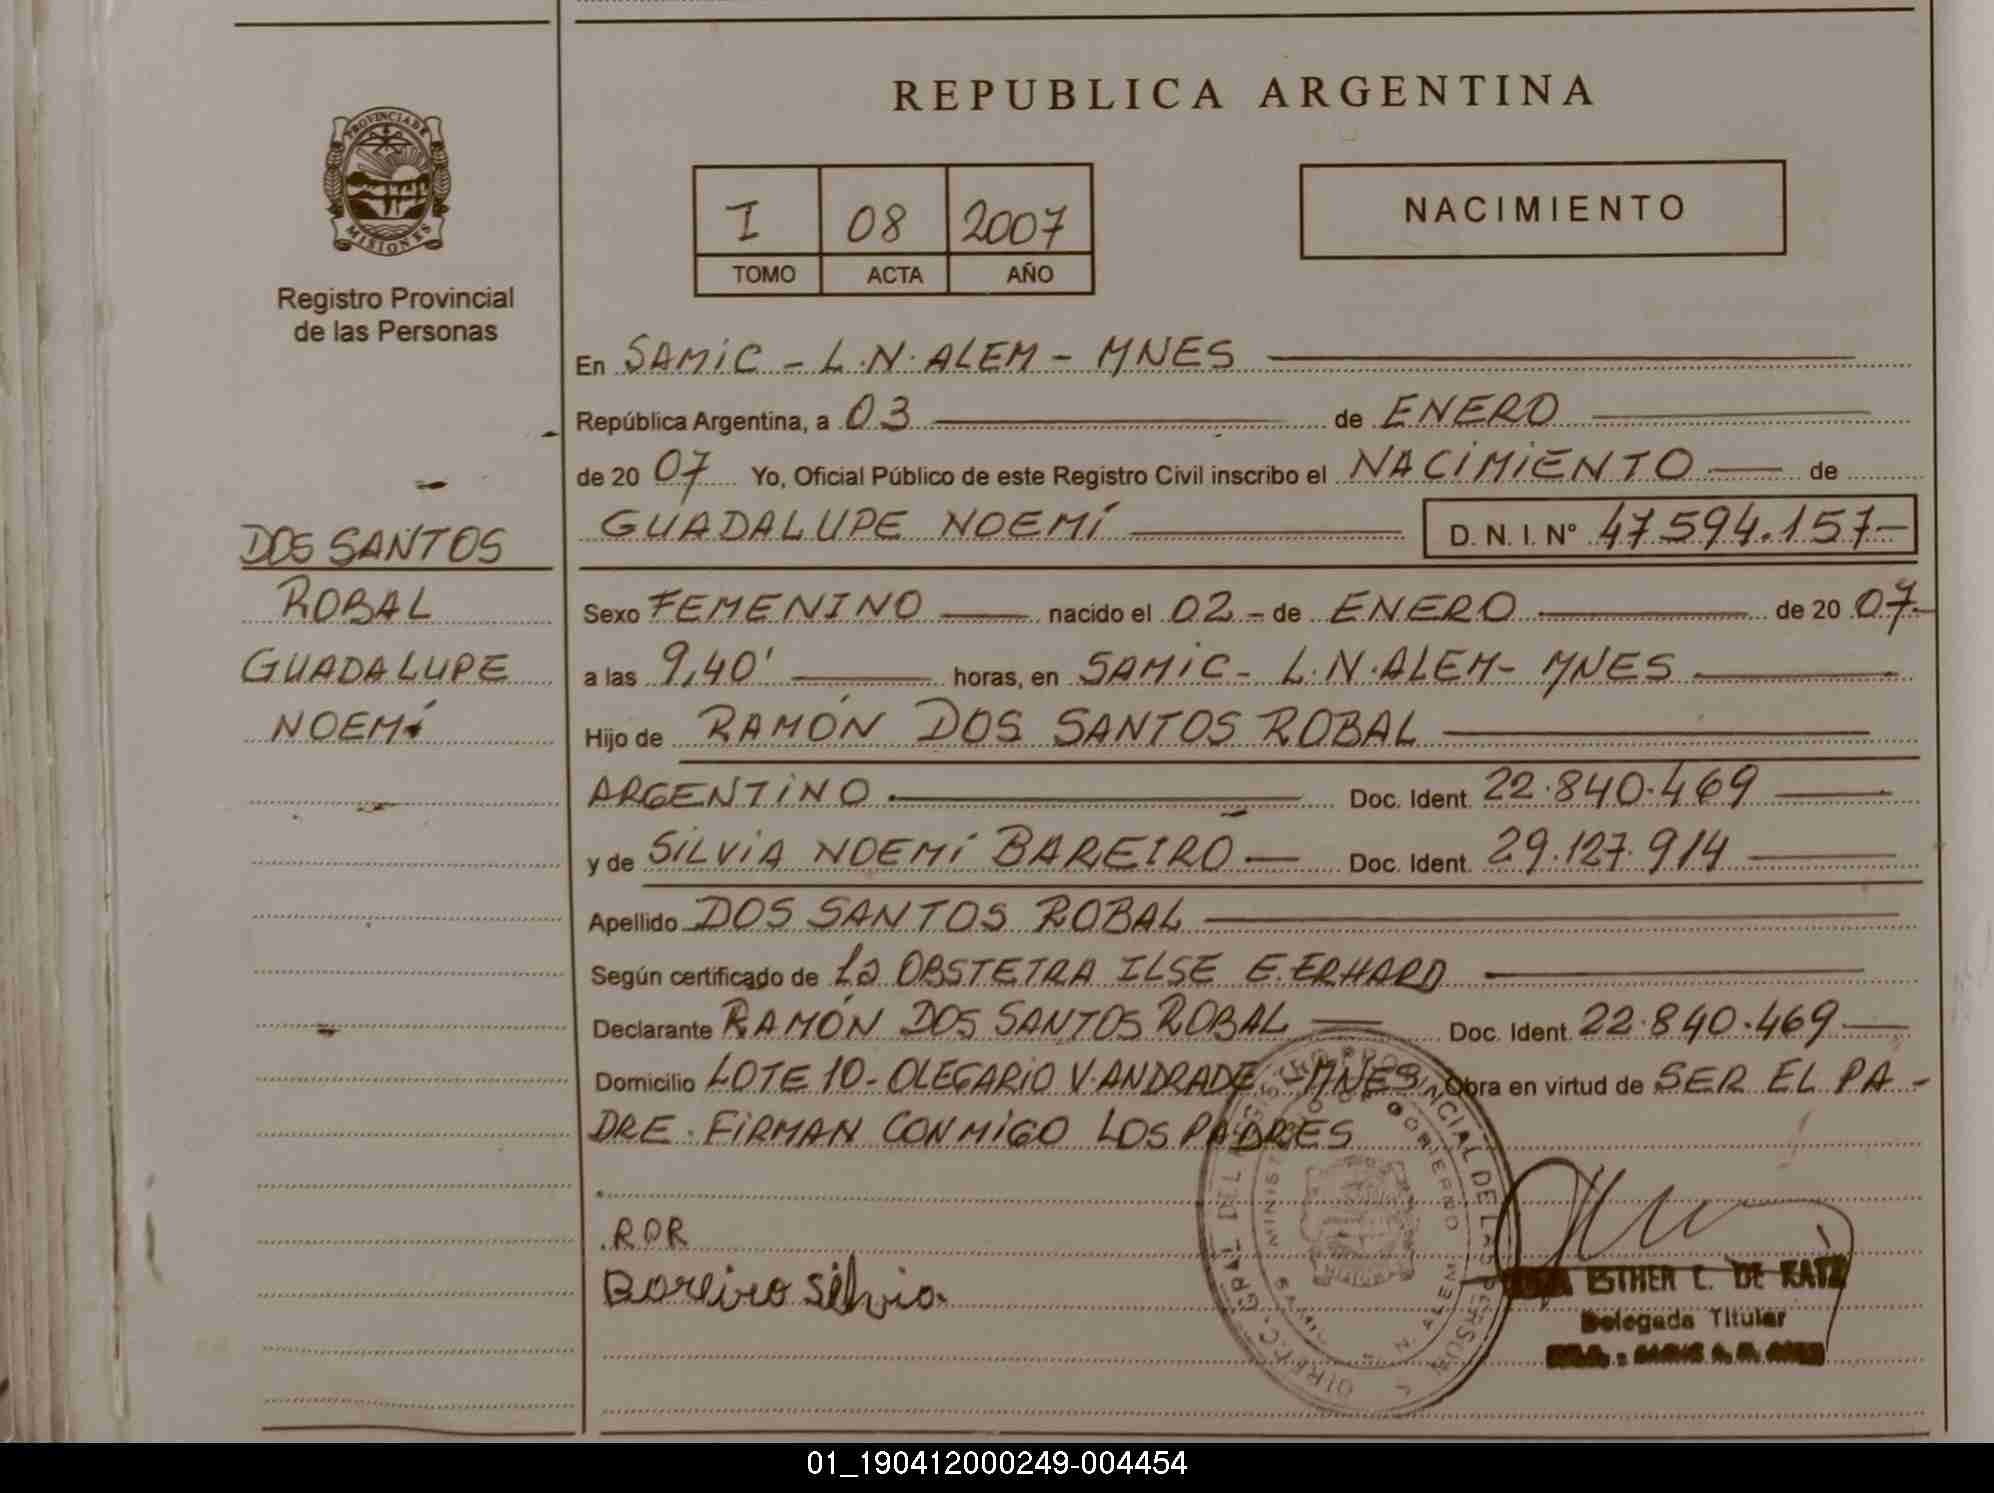 REPUBLICA ARGENTINA
PROVINCIA DE
MISIONES
Registro Provincial
de las Personas
I 08 2007
TOMO ACTA AÑO
NACIMIENTO
En SAMIC - L.N. ALEM - MNES
República Argentina, a 03 de ENERO
de 20 07 Yo, Oficial Público de este Registro Civil inscribo el NACIMIENTO de
GUADALUPE NOEMÍ D. N. I. Nº 47.594.157-
DOS SANTOS
ROBAL
GUADALUPE
NOEMÍ
Sexo FEMENINO nacido el 02 - de ENERO de 20 07-
a las 9,40' horas, en SAMIC - L.N. ALEM - MNES
Hijo de RAMÓN DOS SANTOS ROBAL
ARGENTINO Doc. Ident. 22.840.469
y de SILVIA NOEMÍ BAREIRO Doc. Ident. 29.127.914
Apellido DOS SANTOS ROBAL
Según certificado de La OBSTETRA ILSE E. ERHARD
Declarante RAMÓN DOS SANTOS ROBAL Doc. Ident. 22.840.469
Domicilio LOTE 10 - OLEGARIO V. ANDRADE - MNES Obra en virtud de SER EL PA-
DRE. FIRMAN CONMIGO LOS PADRES
RDR
Bareiro Silvia
REGISTRO PROVINCIAL DE LAS PERSON
DIREC. GRAL. DEL
MINISTERIO DE GOBIERNO
N. ALEM
ESTHER C. DE KATZ
Delegada Titular
01_190412000249-004454